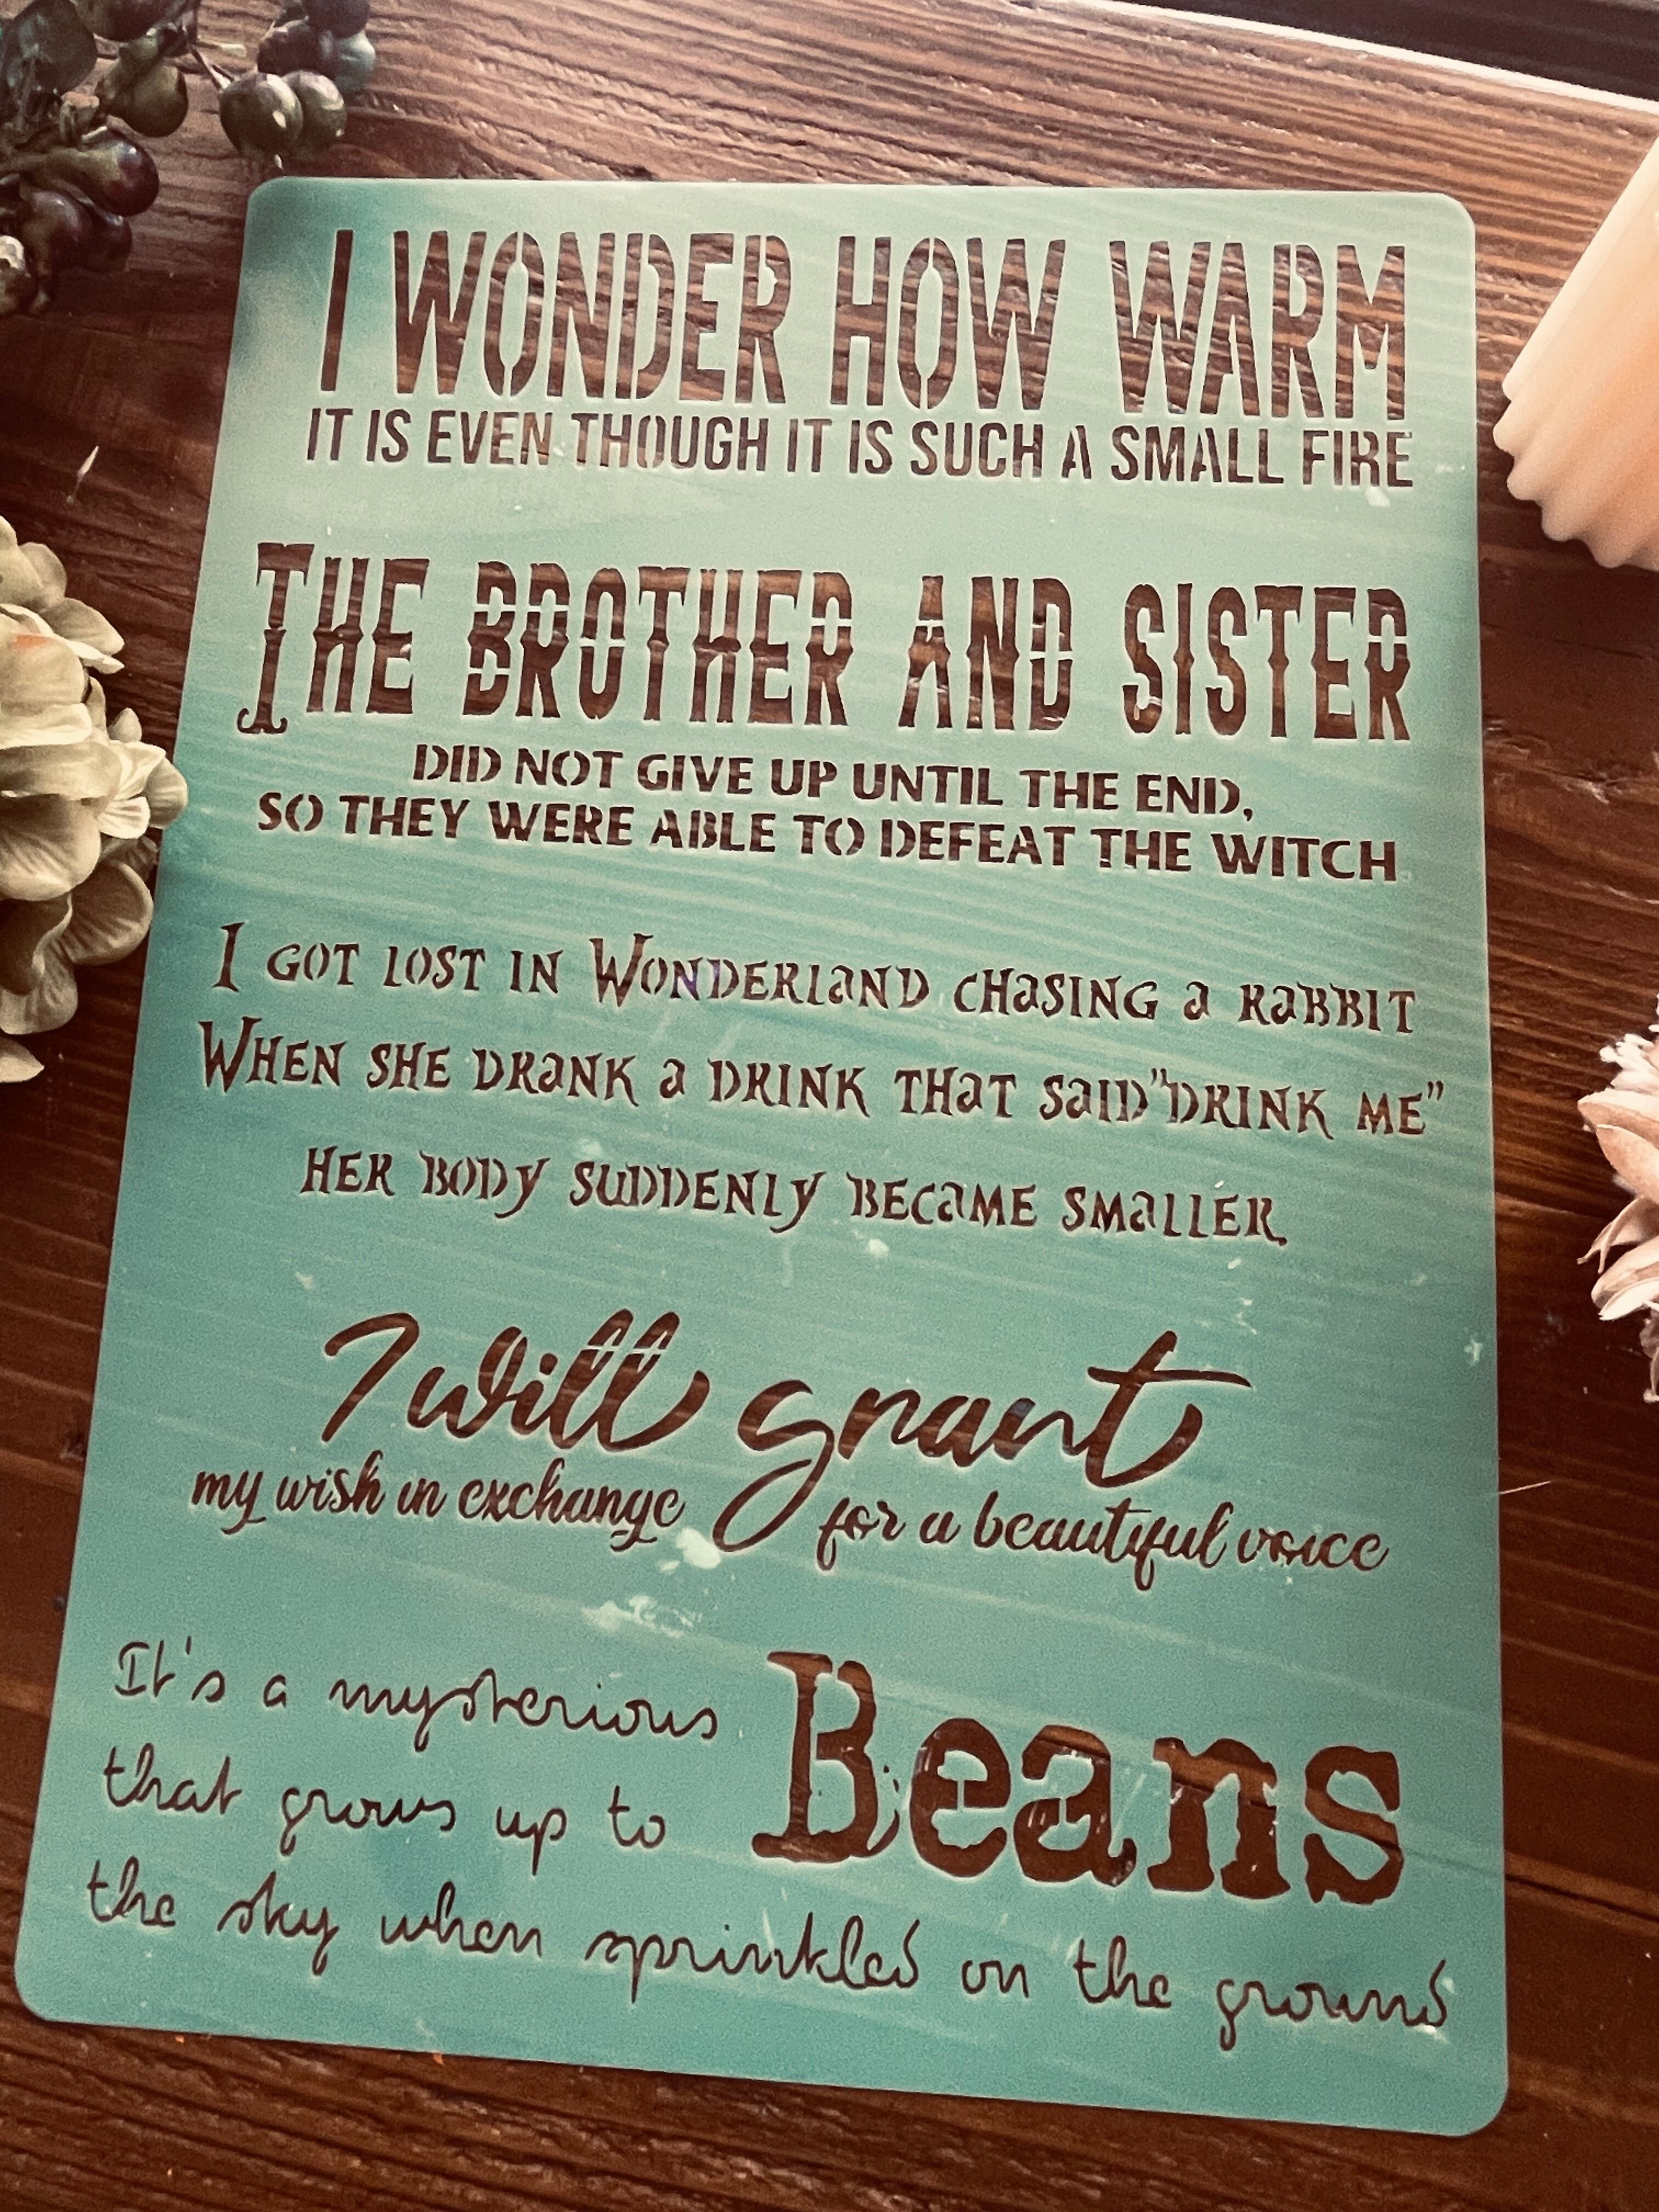 I WONDER HOW WARM
IT IS EVEN THOUGH IT IS SUCH A SMALL FIRE
THE BROTHER AND SISTER
DID NOT GIVE UP UNTIL THE END,
SO THEY WERE ABLE TO DEFEAT THE WITCH
I GOT LOST IN WONDERLaND CHaSING a RaBBIT
WHEN SHE DRaNK a DRINK THaT SaID"DRINK ME"
HER BODY SUDDENLY BECaME SMaLLER.
I will grant
my wish in exchange for a beautiful voice
It's a mysterious Beans
that grows up to
the sky when sprinkled on the ground